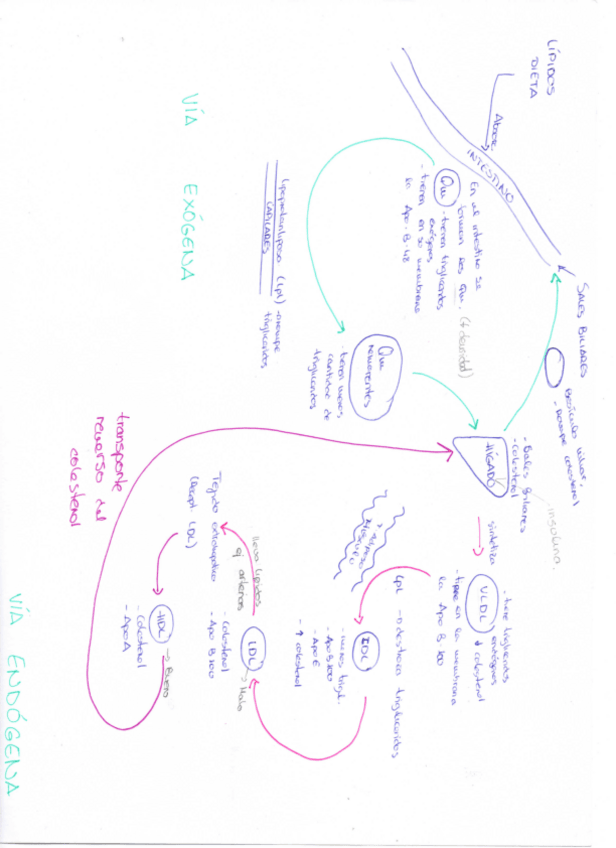 LÍPIDOS
DIETA
INTESTINO
SALES BILIARES
En el intestino se
forman los Qm. (↓ densidad)
Qm
- tienen triglicéridos
exógenos
- tienen en su membrana
la Apo-B-48
lipoproteinlipasa (LPL) → rompe
triglicéridos
CAPILARES
VÍA EXÓGENA
Qm
remanentes
- tienen menos
cantidad de
triglicéridos
- rompe colesterol
HÍGADO
- Sales Biliares
- Colesterol
insulina.
sintetiza
VLDL
- tiene triglicéridos
endógenos
↓ colesterol
- tiene en la membrana
la Apo B 100
LPL → destruye triglicéridos
IDL
- menos trigl.
- Apo B100
- Apo E
- ↑ colesterol
LDL → Malo
- Colesterol
- Apo B100
lleva lípidos
ej arterias
Tejido extrahepático
(Recept LDL)
HDL → Bueno
- Colesterol
- Apo A
transporte
reverso del
colesterol
VÍA ENDÓGENA